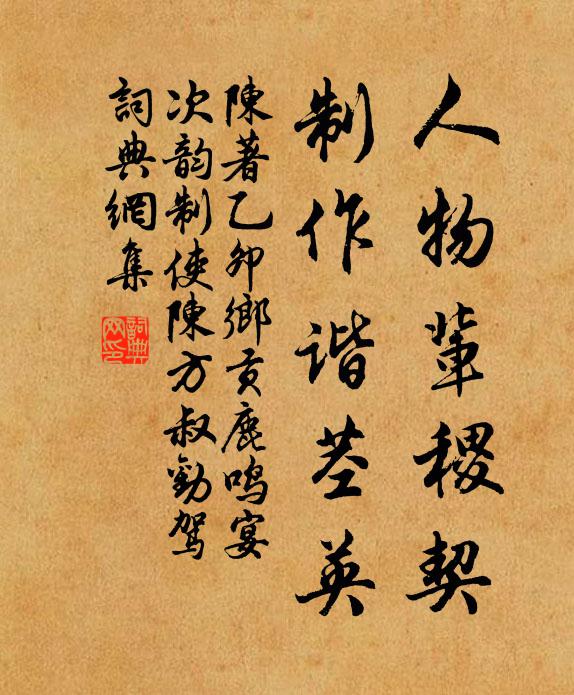 人物辈稷契
制作谐茎英
陳著乙卯鄉貢鹿鸣宴
次韵制使陳方叔勸驾
詞典網集
詞典网印